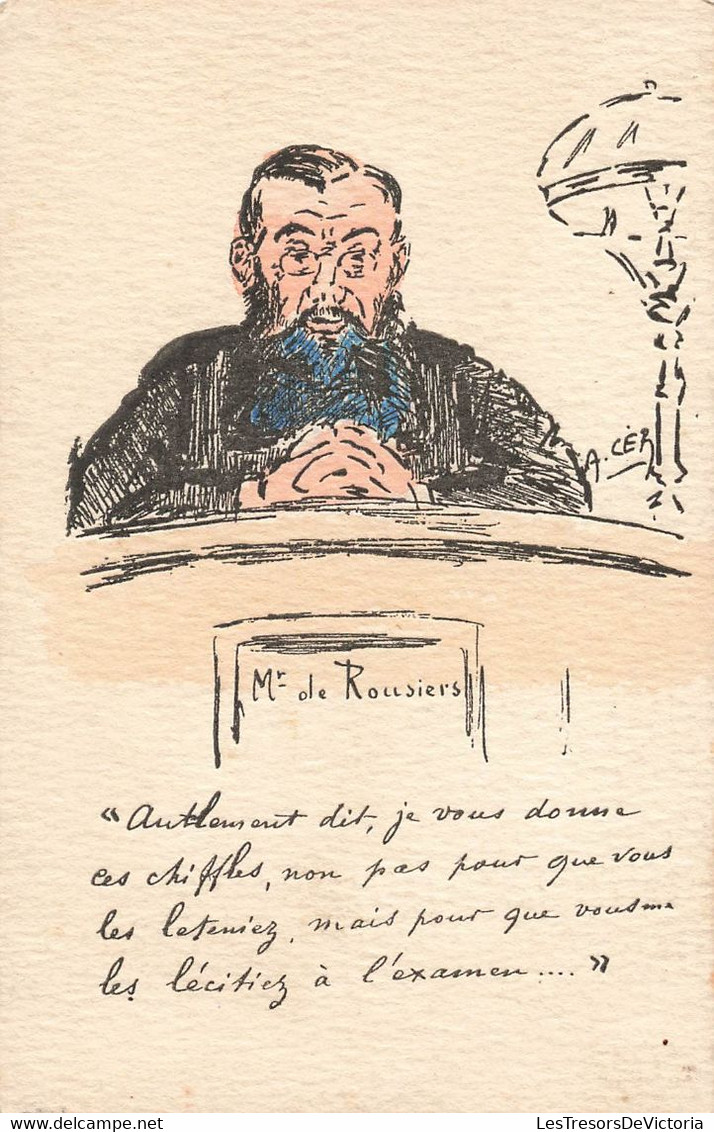 A. CER
Mr de Rousiers
"Autlement dit, je vous donne
ces chiffles, non pas pour que vous
les leteniez, mais pour que vous me
les lécitiez à l'examen...."
delcampe.net
LesTresorsDeVictoria